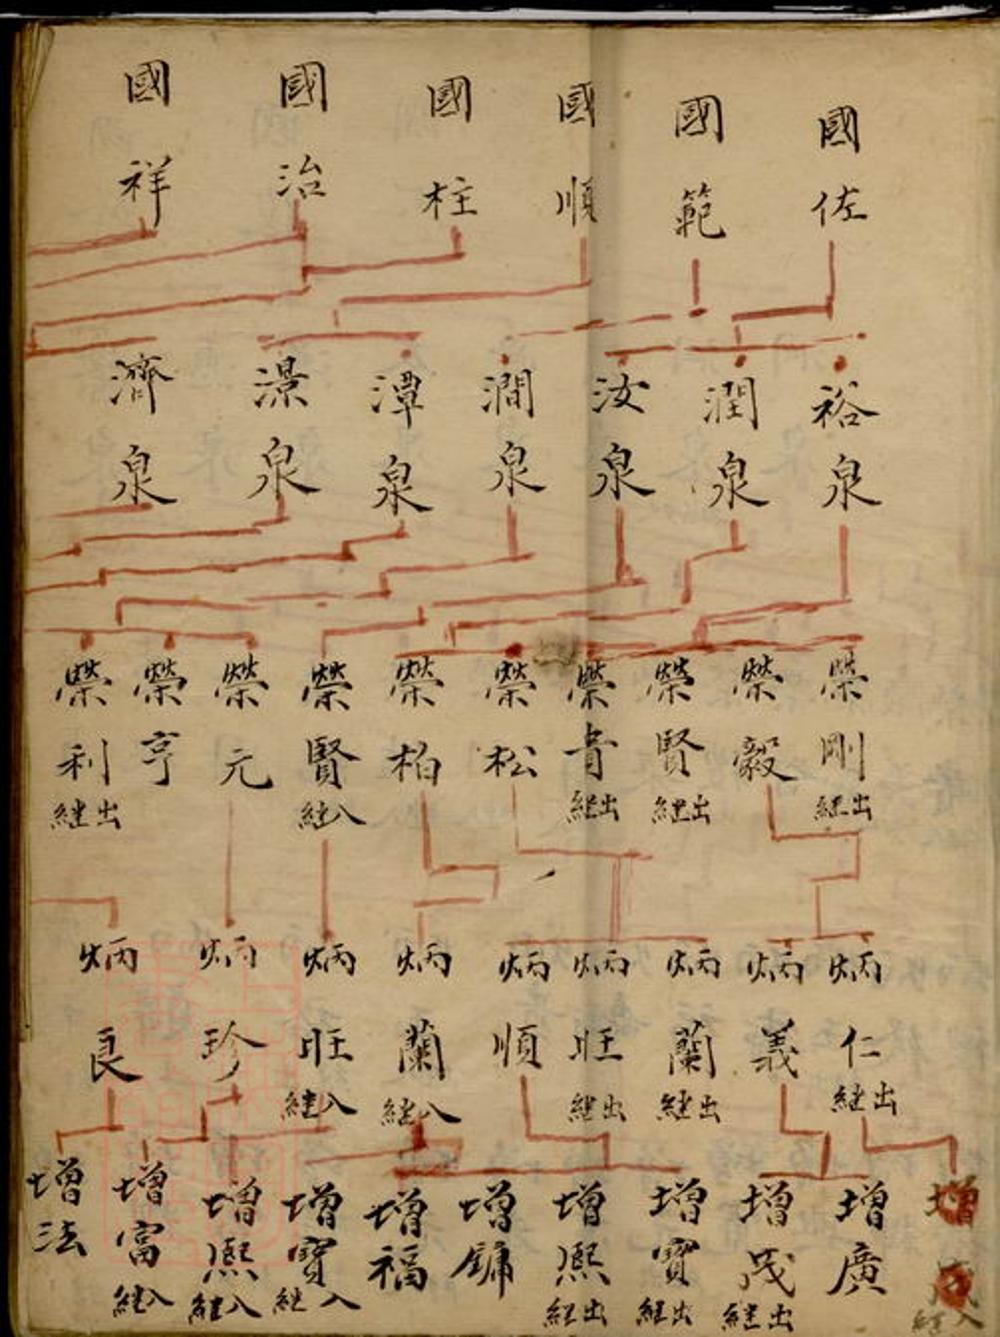 國佐
國範
國順
國柱
國治
國祥
裕泉
潤泉
汝泉
澗泉
潭泉
濝泉
濟泉
榮剛 出継
榮毅
榮賢 出継
榮貴 出継
榮松
榮柏
榮賢 入継
榮元
榮亨
榮利 出継
炳仁 出継
炳義
炳蘭 出継
炳旺 出継
炳順
炳蘭 入継
炳旺 入継
炳珍
炳良
增茂 入継
增廣
增茂 出継
增寶 出継
增熙 出継
增鏞
增福
增寶 入継
增熙 入継
增富 入継
增法